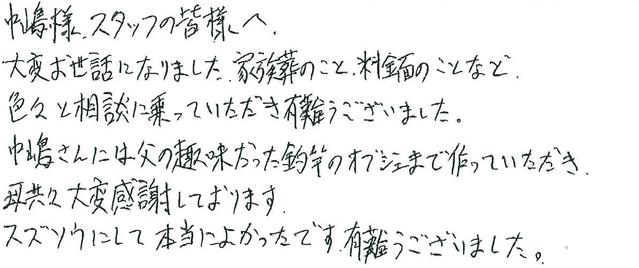 中嶋様、スタッフの皆様へ、
大変お世話になりました。家族葬のこと、料金面のことなど、
色々と相談に乗っていただき有難うございました。
中嶋さんには父の趣味だった釣竿のオブジェまで作っていただき、
母共々大変感謝しております。
スズソウにして本当によかったです。有難うございました。